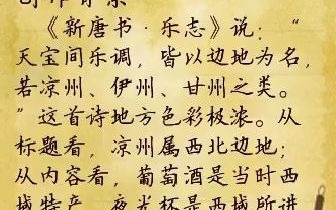 《新唐书·乐志》说：“
天宝间乐调，皆以边地为名，
若凉州、伊州、甘州之类。
”这首诗地方色彩极浓。从
标题看，凉州属西北边地；
从内容看，葡萄酒是当时西
域特产，夜光杯是西域所进